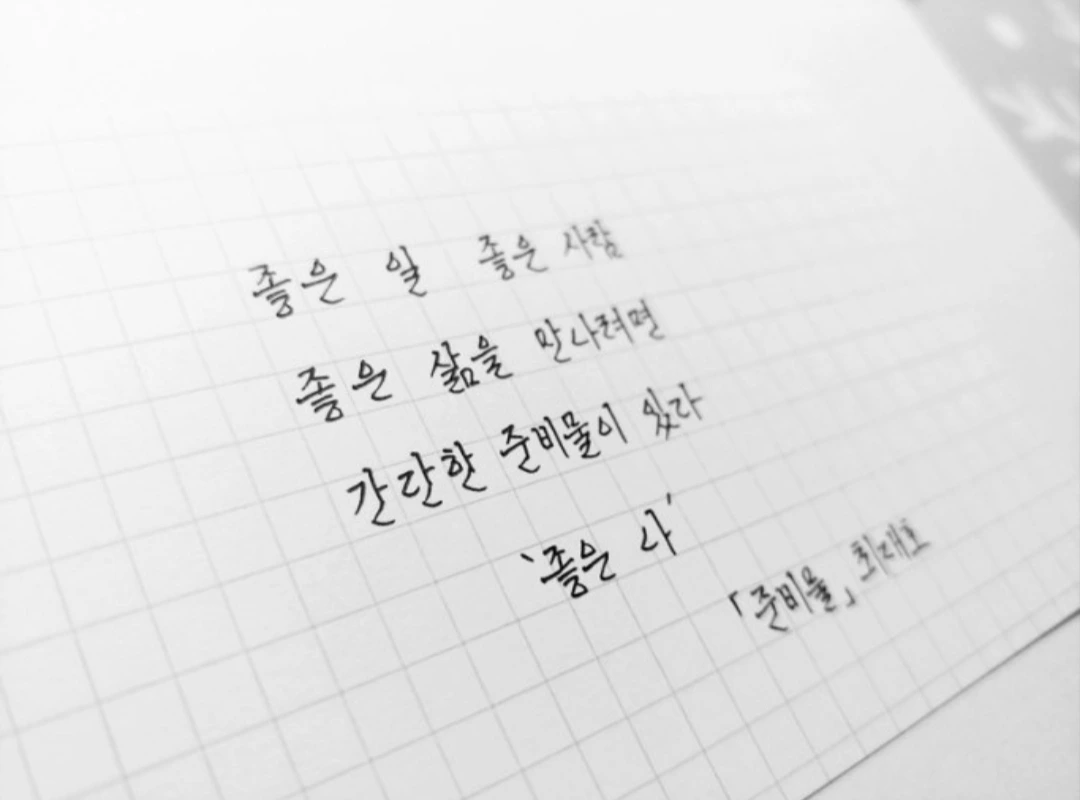 좋은 일 좋은 사람
좋은 삶을 만나려면
간단한 준비물이 있다
'좋은 나'
「준비물」 최대호